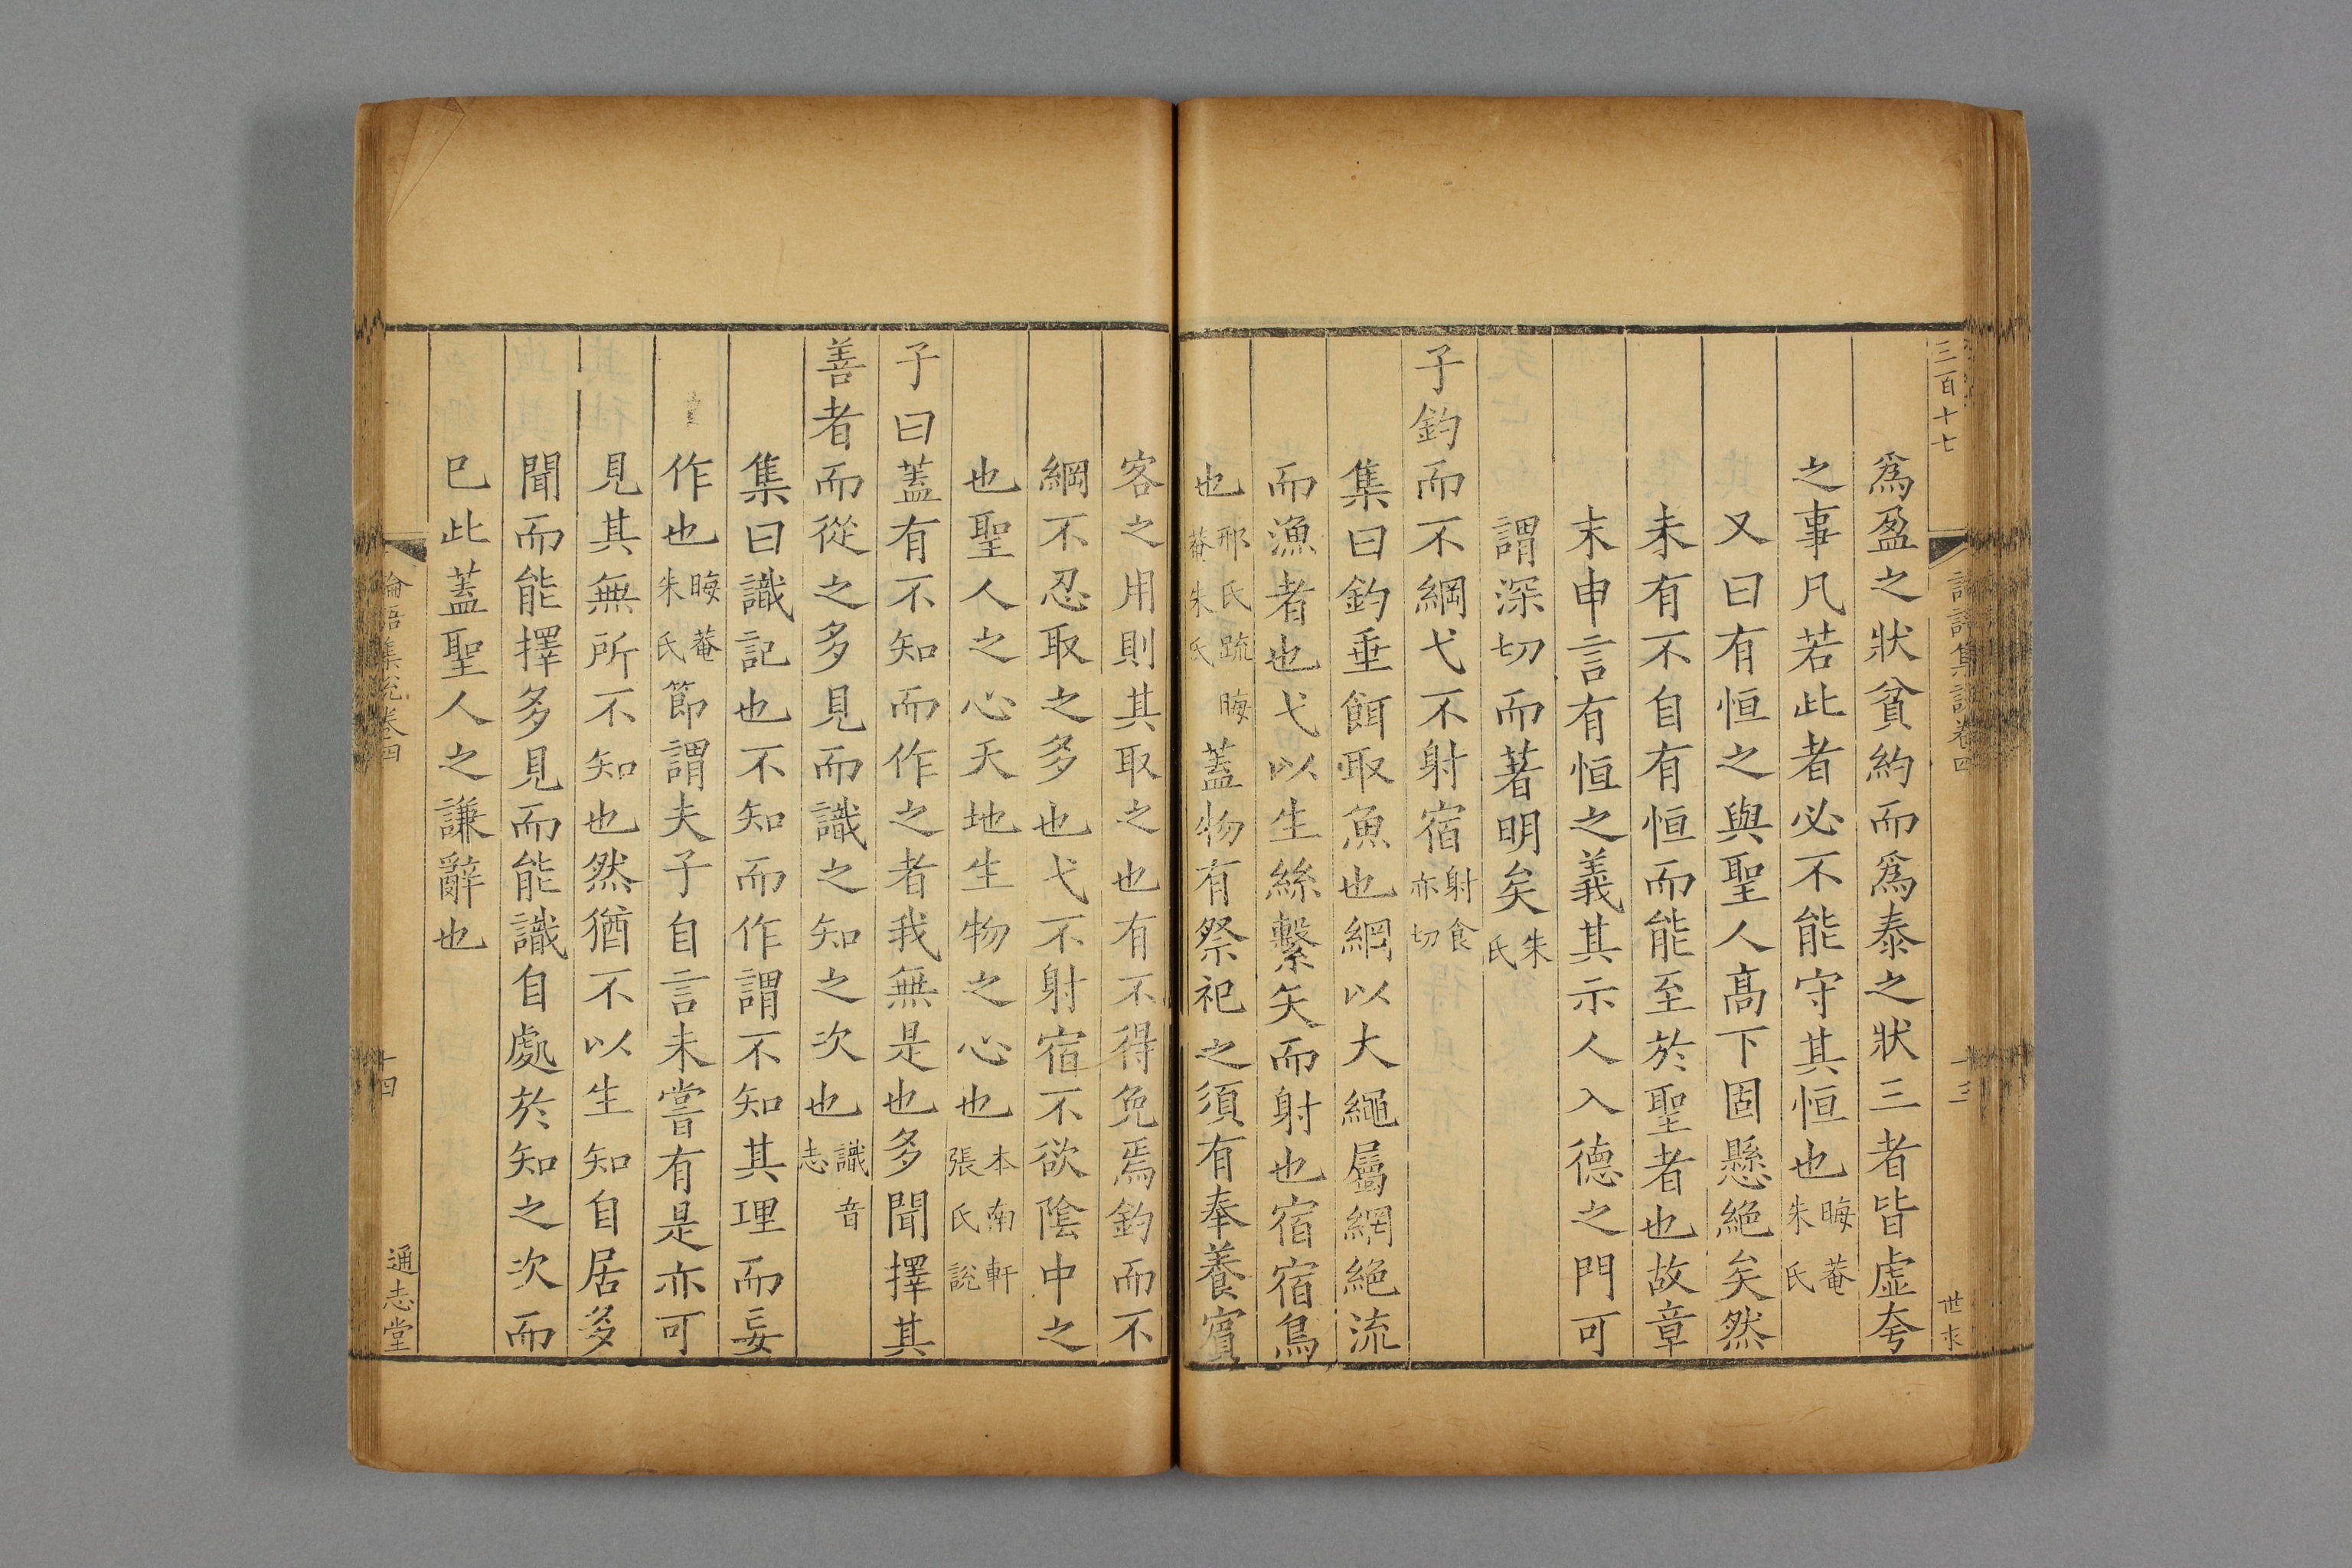 三百十七
論語集說卷四
十三
世求
爲盈之狀貧約而爲泰之狀三者皆虛夸
之事凡若此者必不能守其恒也晦菴朱氏
又曰有恒之與聖人高下固懸絕矣然
未有不自有恒而能至於聖者也故章
末申言有恒之義其示人入德之門可
謂深切而著明矣朱氏
子釣而不綱弋不射宿射食亦切
集曰釣垂餌取魚也綱以大繩屬網絕流
而漁者也弋以生絲繫矢而射也宿宿鳥
也邢氏疏晦菴朱氏蓋物有祭祀之須有奉養賓
客之用則其取之也有不得免焉釣而不
綱不忍取之多也弋不射宿不欲陰中之
也聖人之心天地生物之心也本南軒張氏說
子曰蓋有不知而作之者我無是也多聞擇其
善者而從之多見而識之知之次也識音志
集曰識記也不知而作謂不知其理而妄
作也晦菴朱氏節謂夫子自言未嘗有是亦可
見其無所不知也然猶不以生知自居多
聞而能擇多見而能識自處於知之次而
已此蓋聖人之謙辭也
論語集說卷四
十四
通志堂